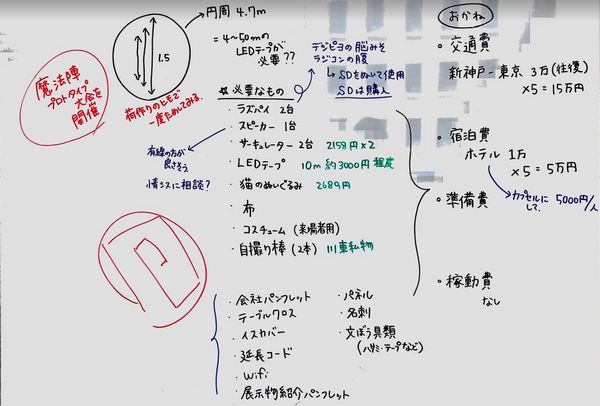 円周 4.7m
= 4~50mの
LEDテープが
必要??
1.5
魔法陣
プロトタイプ
大会を
開催
荷作りのヒモで
一度ためしてみる。
デジピヨの脳みそ
ラジコンの腹
↳ SDをぬいて使用
SDは購入
☆必要なもの
・ラズパイ 2台
・スピーカー 1台
・サーキュレーター 2台 2158円×2
・LEDテープ 10m 約3000円 程度
・猫のぬいぐるみ 2689円
・布
・コスチューム (来場者用)
・自撮り棒 (2本) 川東私物
有線の方が
良さそう
情シスに相談?
・会社パンフレット
・テーブルクロス
・イスカバー
・延長コード
・Wifi
・展示物紹介パンフレット
・パネル
・名刺
・文ぼう具類
(ハサミ・テープなど)
おかね
・交通費
新神戸-東京 3万(往復)
×5=15万円
・宿泊費
ホテル 1万
×5=5万円
カプセルに
して、5000円/人
・準備費
・稼動費
なし